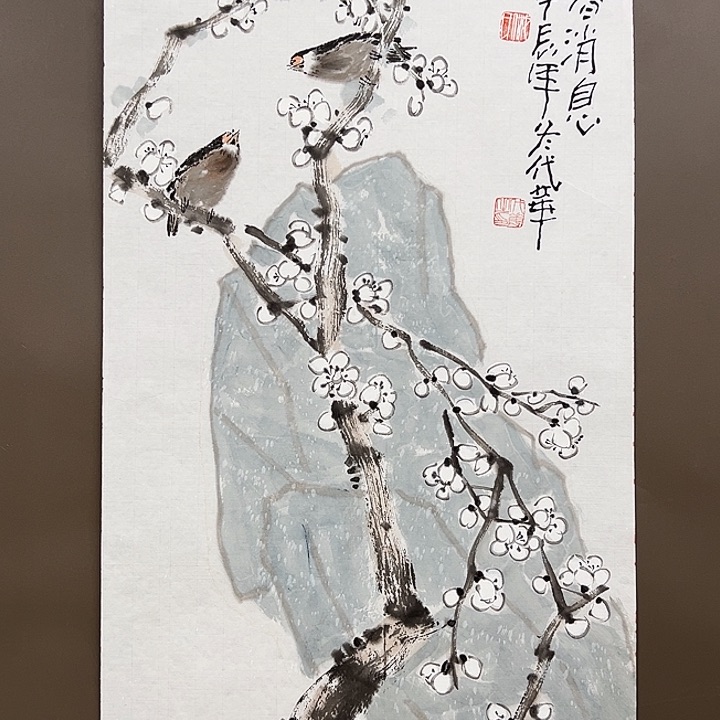 春消息
甲辰年冬代華